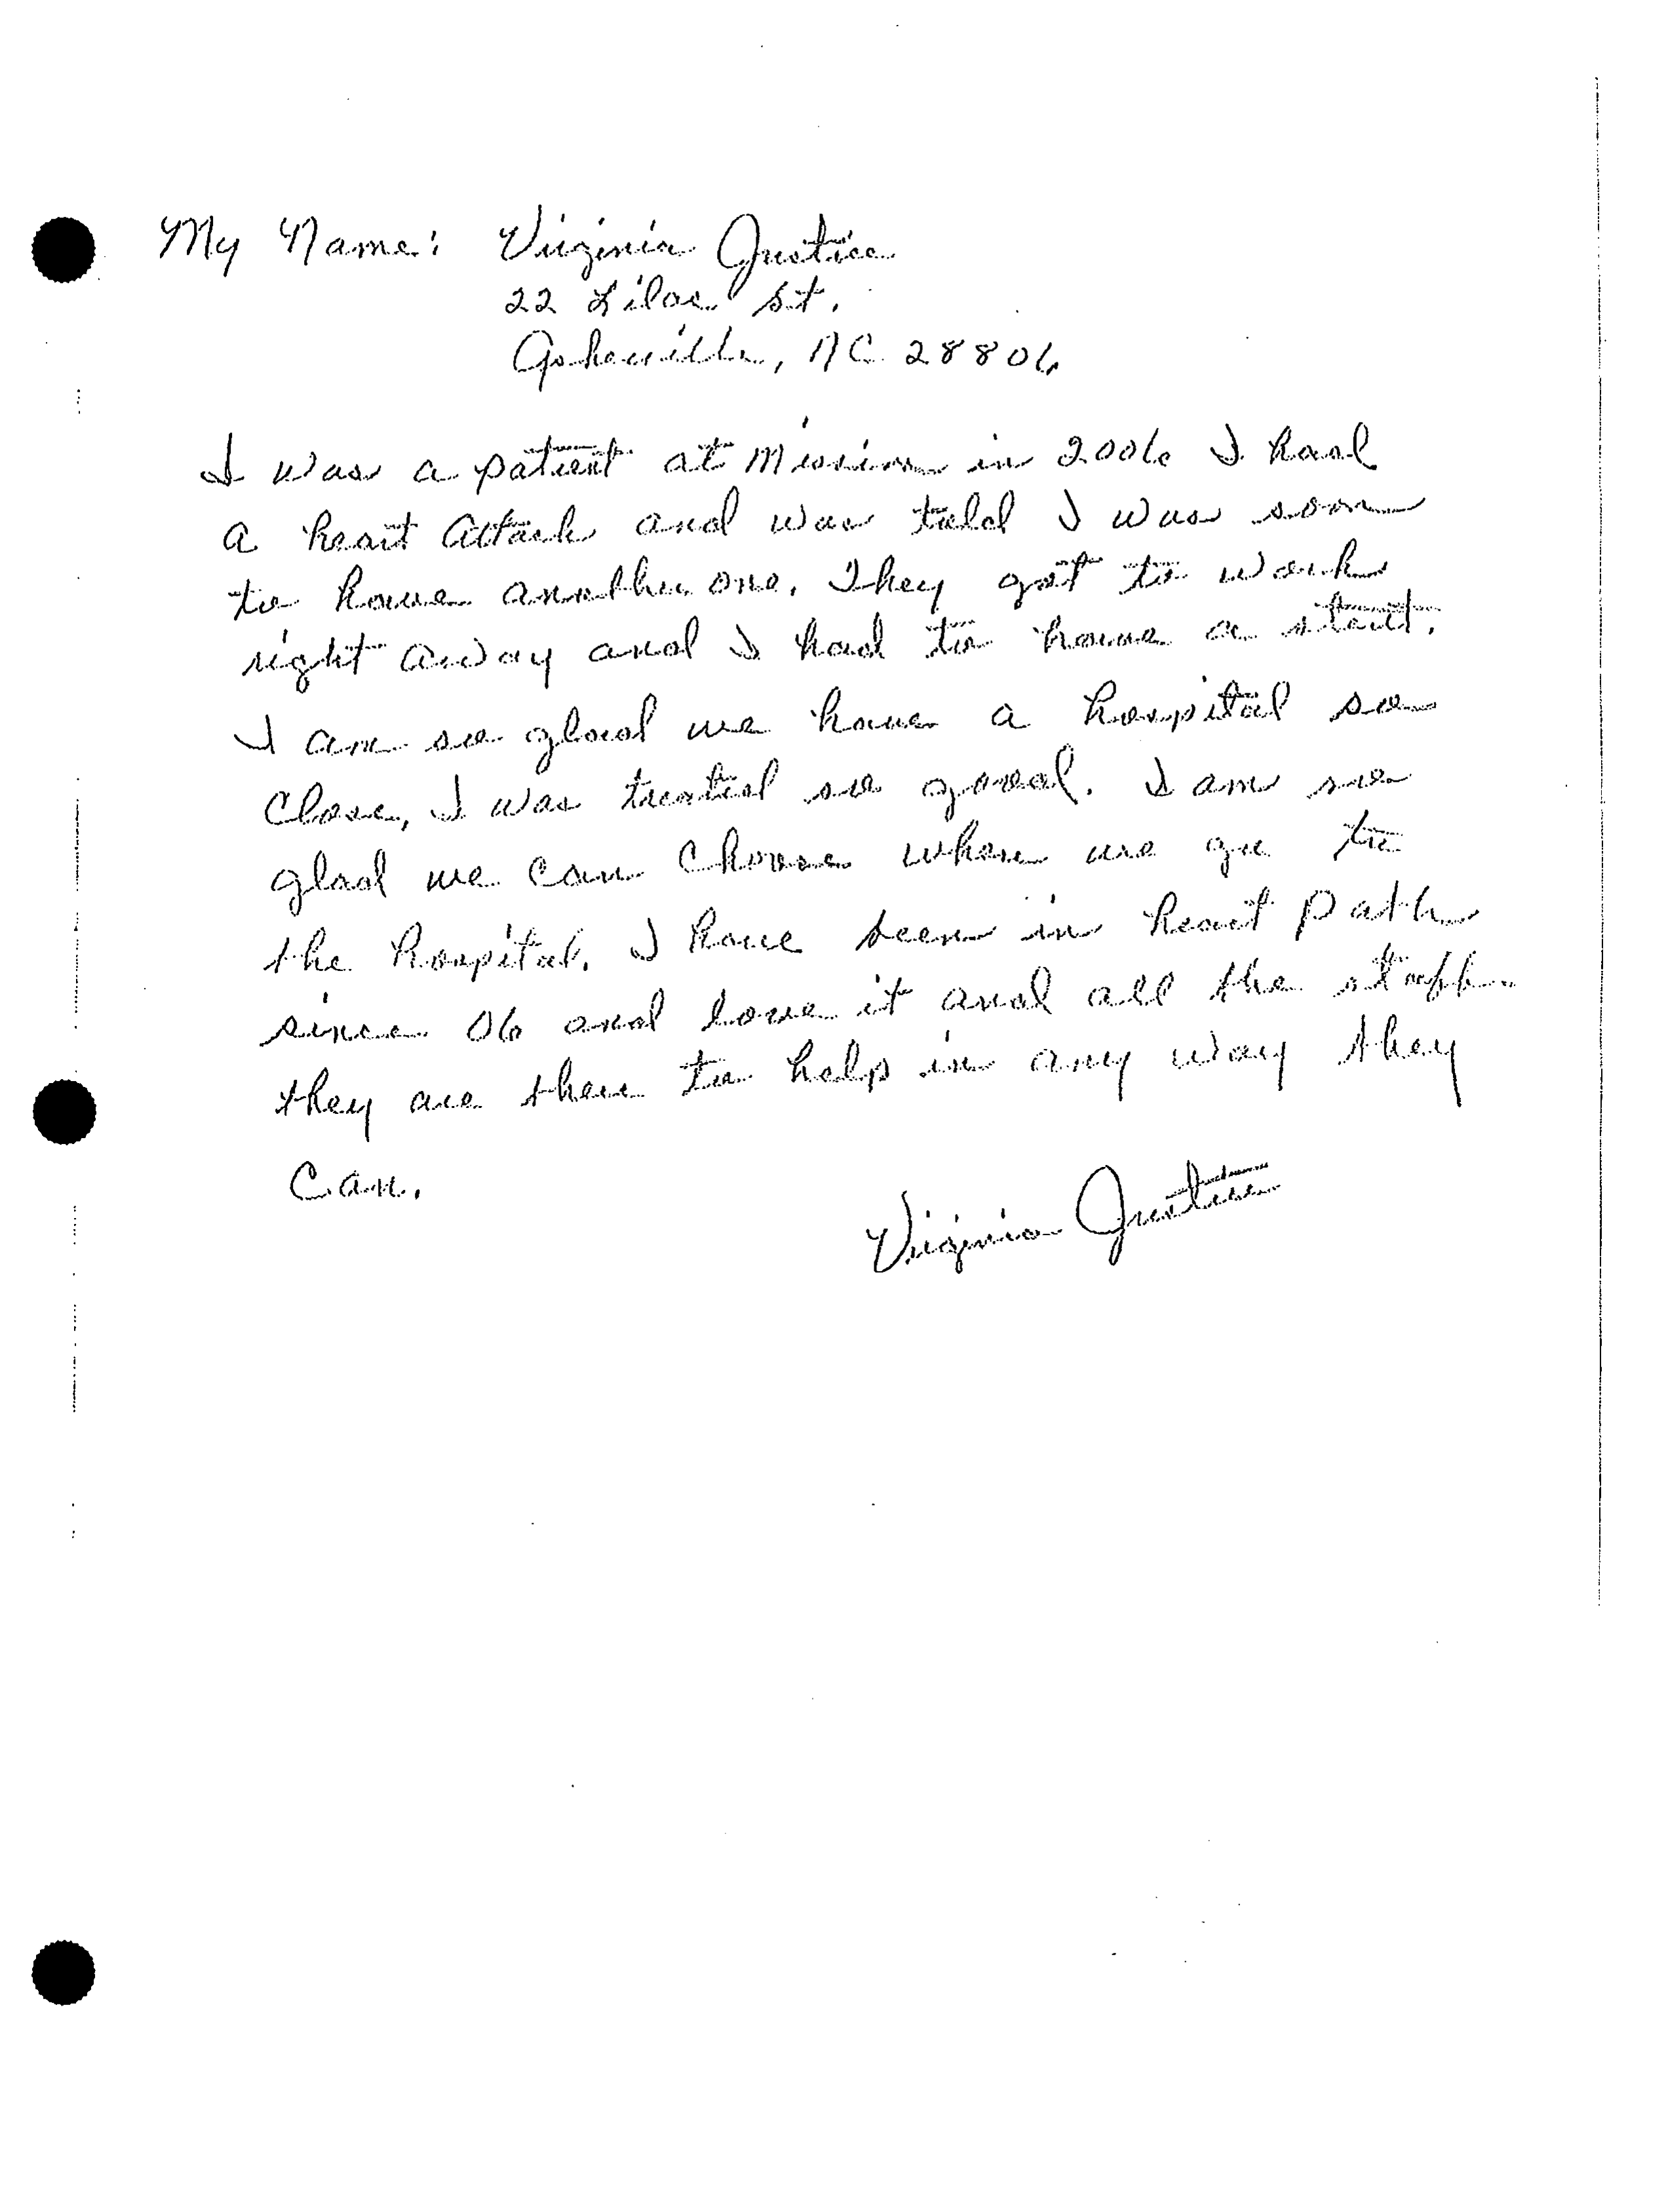 My Name: Virginia Justice
22 Lilac St.
Asheville, NC 28806
I was a patient at Mission in 2006 I had
a heart attack and was told I was soon
to have another one. They got to work
right away and I had to have a stent.
I am so glad we have a hospital so
close, I was treated so good. I am so
glad we can choose where we go to
the hospital. I have been in heart path
since 06 and love it and all the staff.
they are there to help in any way they
can.
Virginia Justice